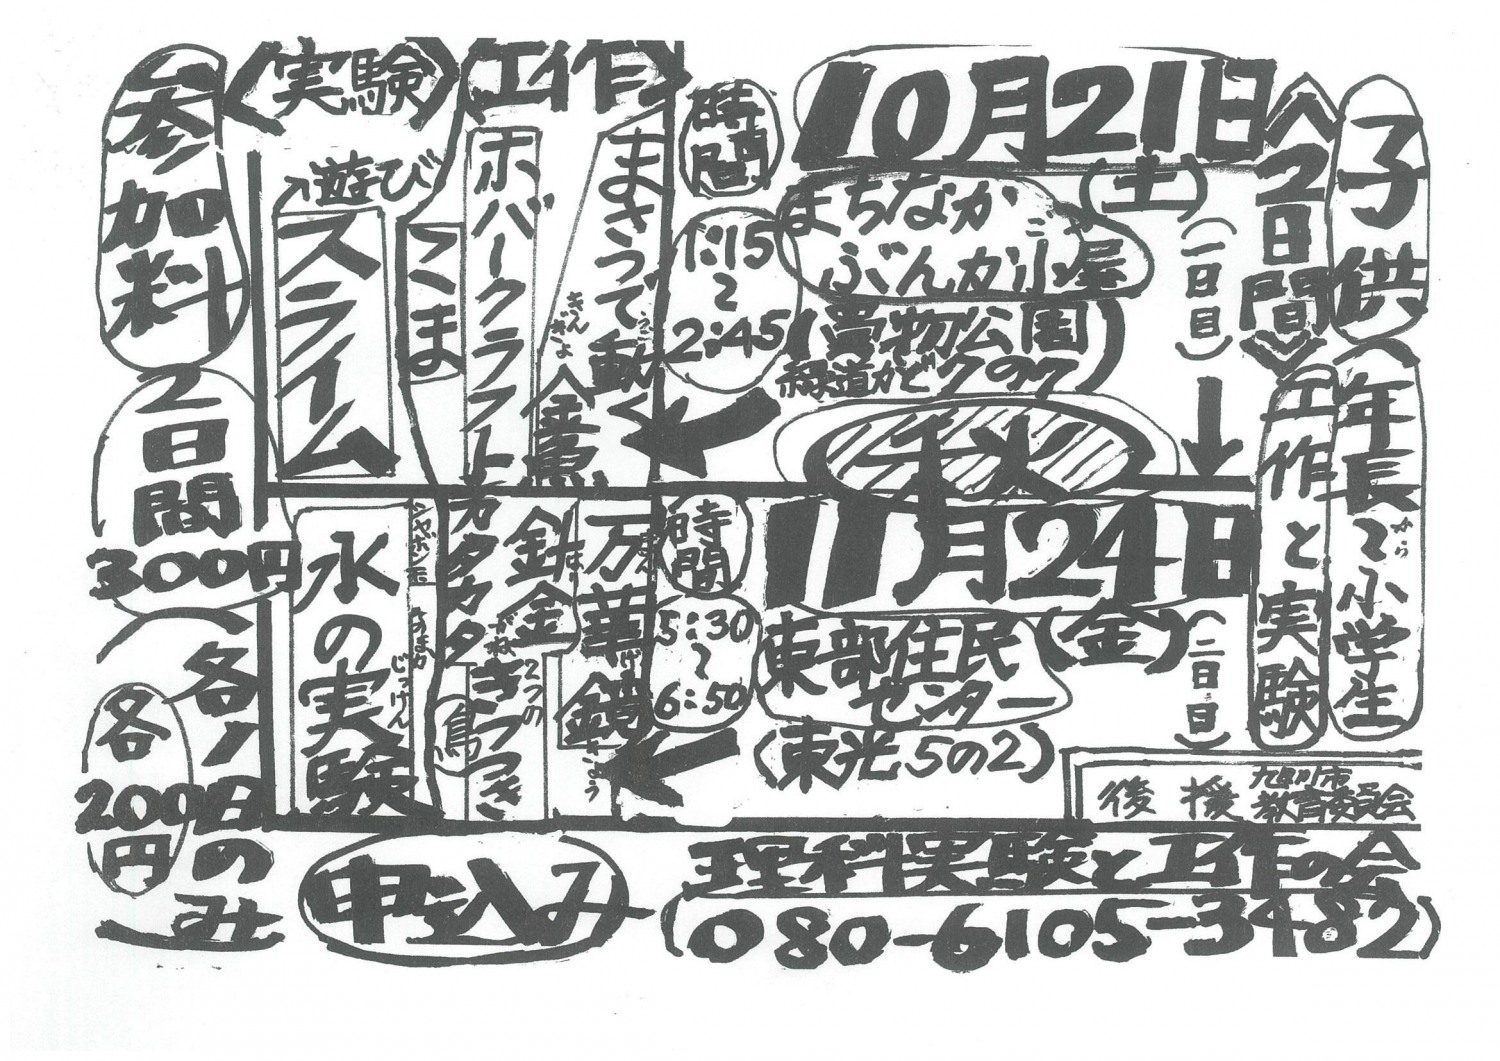 子供
(年長~小学生
から
《2日間》
工作と実験
10月21日
(土)
(一日目)
まちなか
ぶんか小屋
ごや
(買物公園
緑道かど7の7)
秋
時間
1:15
~
2:45
〈工作〉
まさつで動く
うご
金魚
きんぎょ
ホバークラフト
こま
〈実験〉
遊び
スライム
11月24日
(金)
(二日目)
東部住民
センター
(東光5の2)
時間
5:30
~
6:50
万華鏡
まんげきょう
針金
はりがね
2つの
カタカタ
きつつき
鳥
シャボン玉
水の実験
じっけん
参加料
2日間
300円
(各1日のみ
各
200円
後援
旭川市
教育委員会
申込み
理科実験と工作の会
(080-6105-3482)